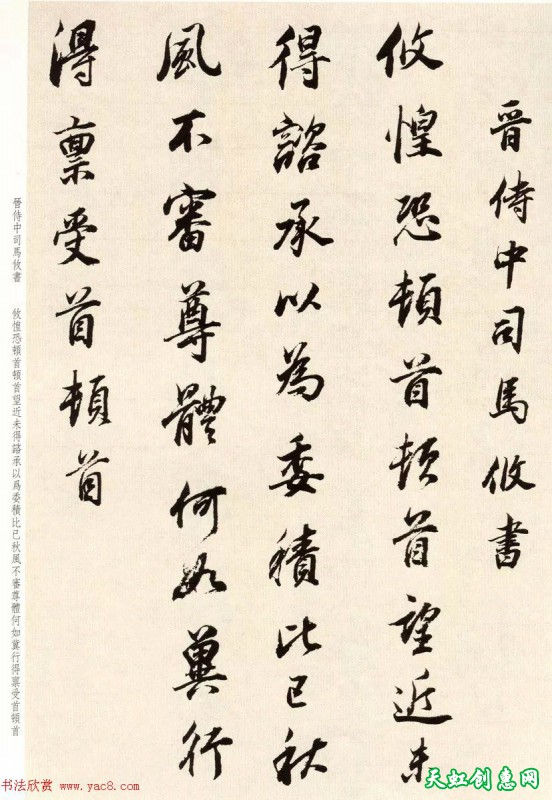 晉侍中司馬攸書
攸惶恐頓首頓首望近未
得諮承以為委積比已秋
風不審尊體何如冀行
得稟受首頓首
晉侍中司馬攸書 攸惶恐頓首頓首望近未得諮承以爲委積比已秋風不審尊體何如冀行得稟受首頓首
书法欣赏 www.yac8.com
天虹创惠网